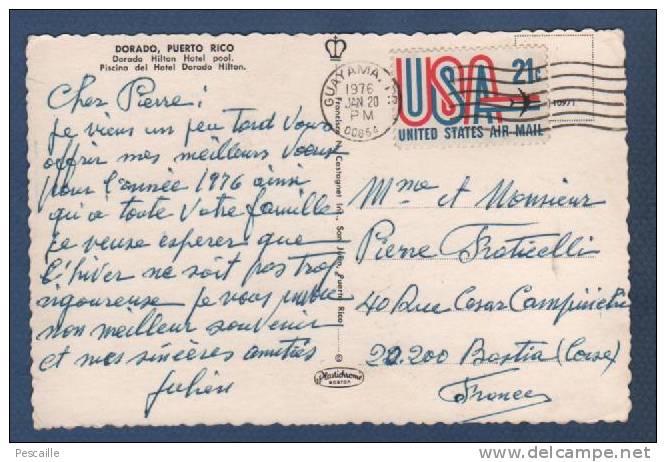 DORADO, PUERTO RICO
Dorado Hilton Hotel pool.
Piscina del Hotel Dorado Hilton.
Cher Pierre;
je viens un peu tard vous
offrir mes meilleurs voeux
pour l'année 1976 ainsi
qui a toute votre famille
je veuse esperer que
l'hiver ne soit pas trop
rigoureuse je vous
mon meilleur souvenir
et mes sincères amitiés
Julien
GUAYAMA, P.R.
1976
JAN 20
PM
00654
USA 21c
UNITED STATES AIR MAIL
10971
Francisco N. Castagnet Int. - San Juan, Puerto Rico
©
Plastichrome
BOSTON
Mme et Monsieur
Pierre Fraticelli
40 Rue Cesar Campinchi
20.200 Bastia (Corse)
France
Pescaille
www.delcampe.net